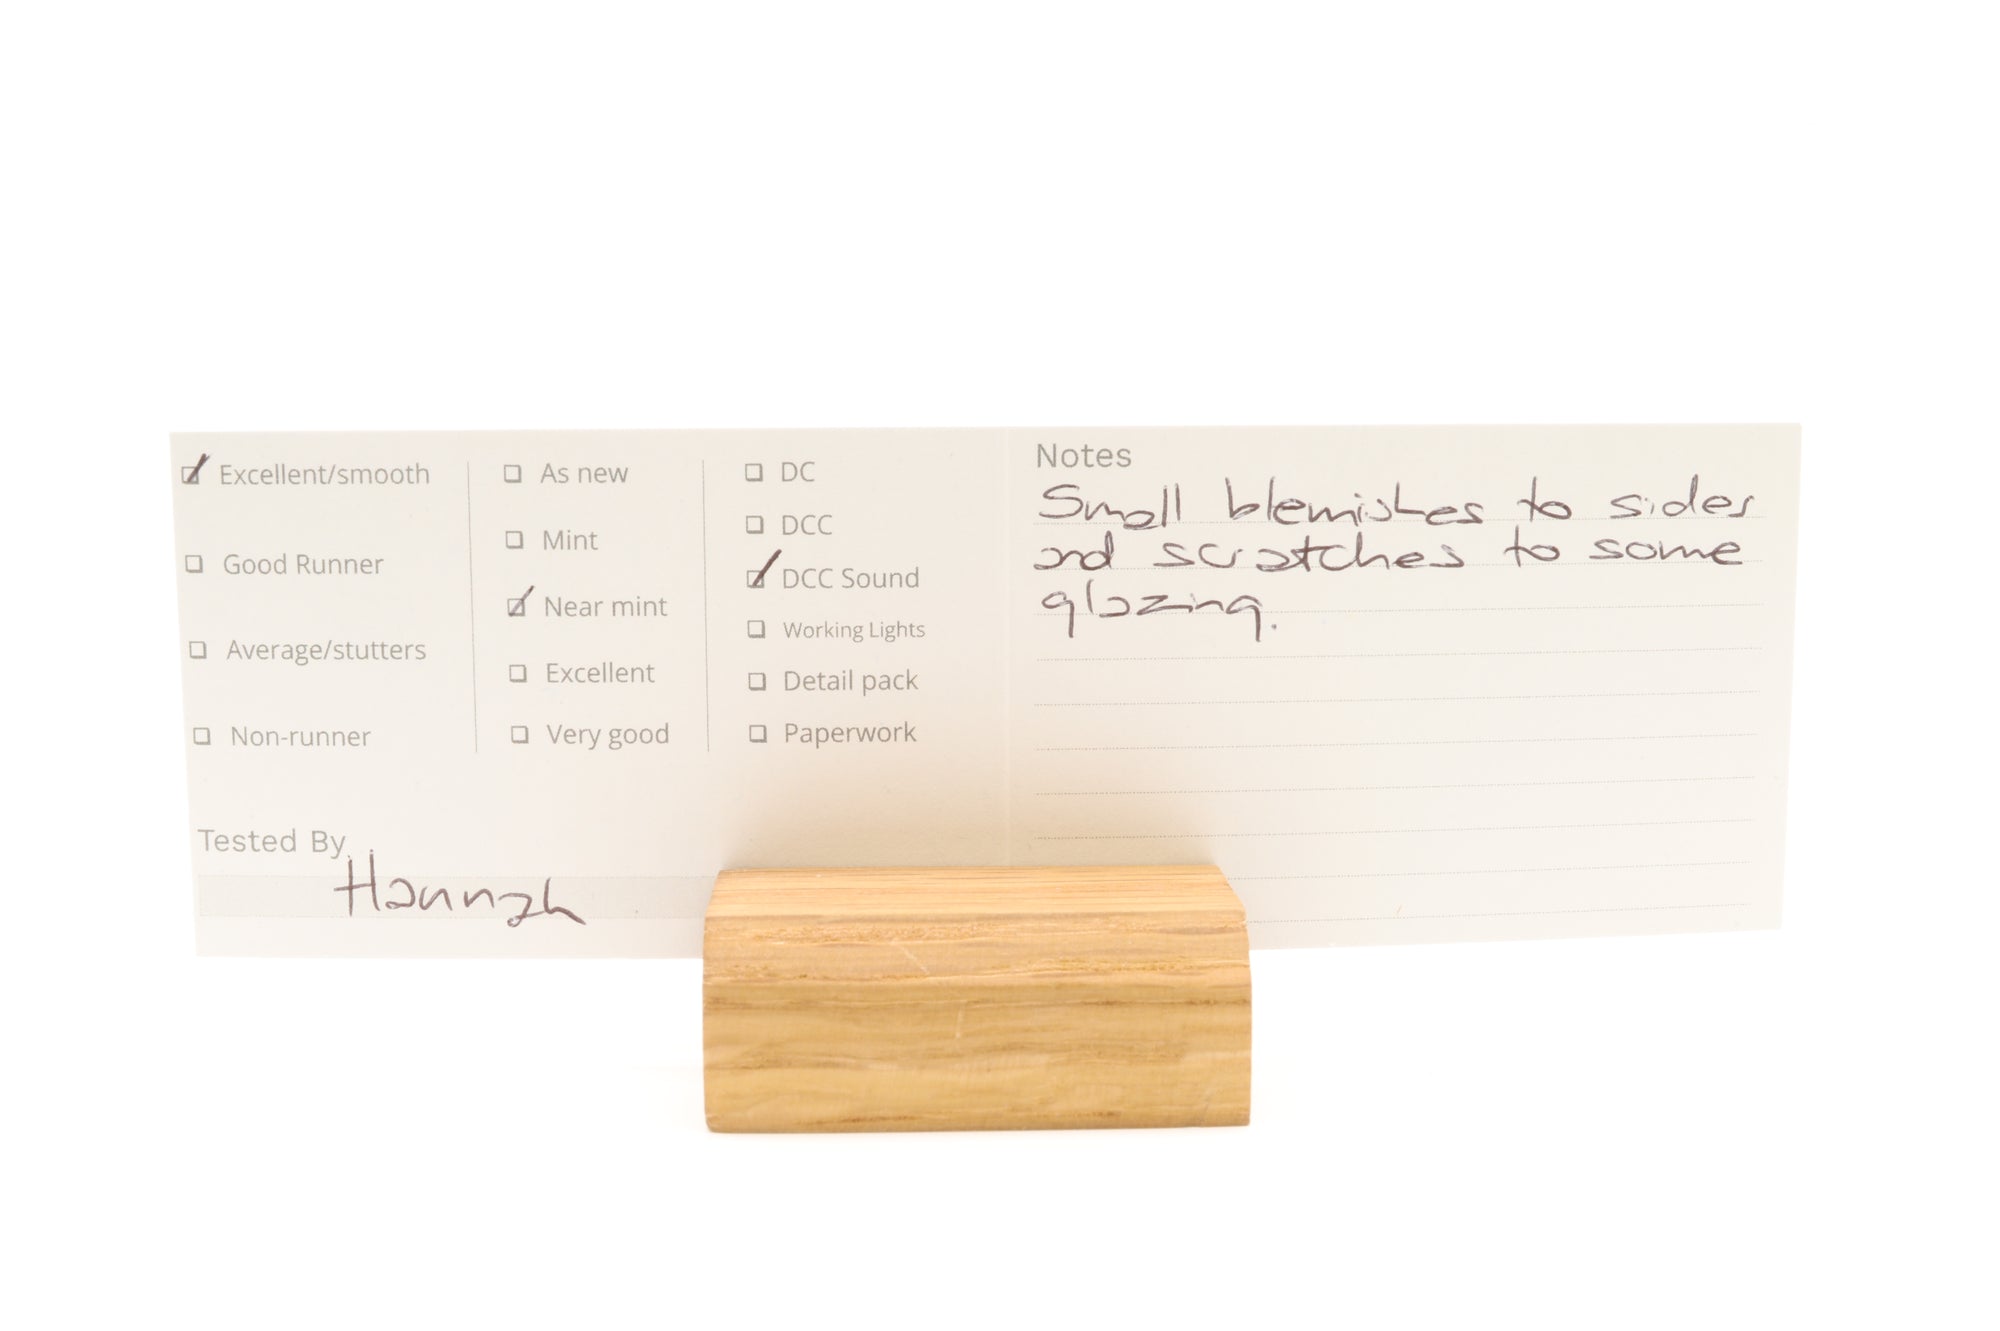 Excellent/smooth
Good Runner
Average/stutters
Non-runner
As new
Mint
Near mint
Excellent
Very good
DC
DCC
DCC Sound
Working Lights
Detail pack
Paperwork
Tested By
Hannah
Notes
Small blemishes to sides
and scratches to some
glazing.